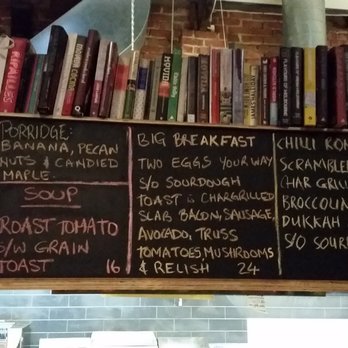 PORRIDGE:
BANANA, PECAN
NUTS & CANDIED
MAPLE.
SOUP
ROAST TOMATO
S/W GRAIN
TOAST 16
BIG BREAKFAST
TWO EGGS YOUR WAY
S/O SOURDOUGH
TOAST is CHARGRILLED
SLAB BACON, SAUSAGE,
AVOCADO, TRUSS
TOMATOES MUSHROOMS
& RELISH 24
CHILLI KON
SCRAMBLE
CHAR GRILL
BROCCOLIN
DUKKAH
S/O SOUR